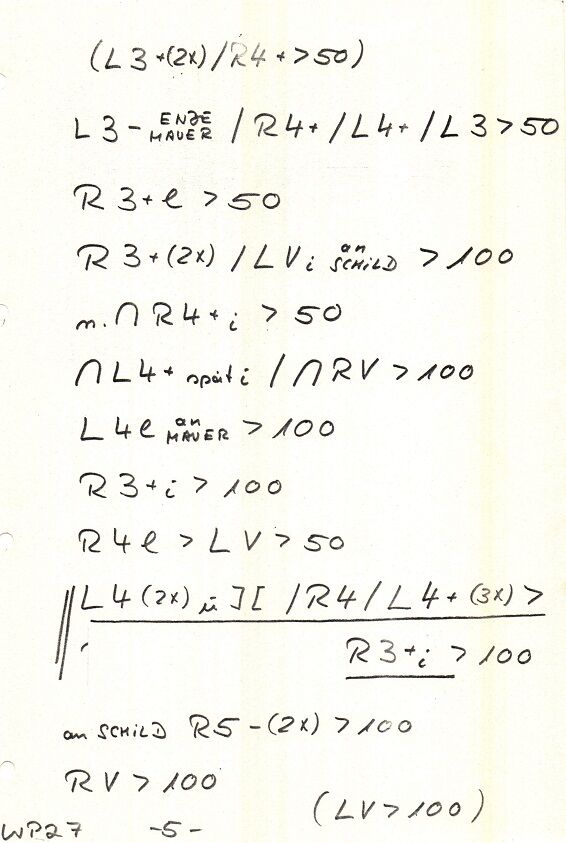 (L3+(2x)/R4+>50)
L3- ENDE MAUER /R4+/L4+/L3>50
R3+l >50
R3+(2x) /LVi an SCHILD >100
n. ∩ R4+i > 50
∩L4+ spät i / ∩RV >100
L4l an MAUER >100
R3+i > 100
R4l > LV > 50
L4(2x) ü ][ /R4/L4+(3x)>
R3+i >100
an SCHILD R5-(2x) >100
RV>100
(LV>100)
WP27 -5-